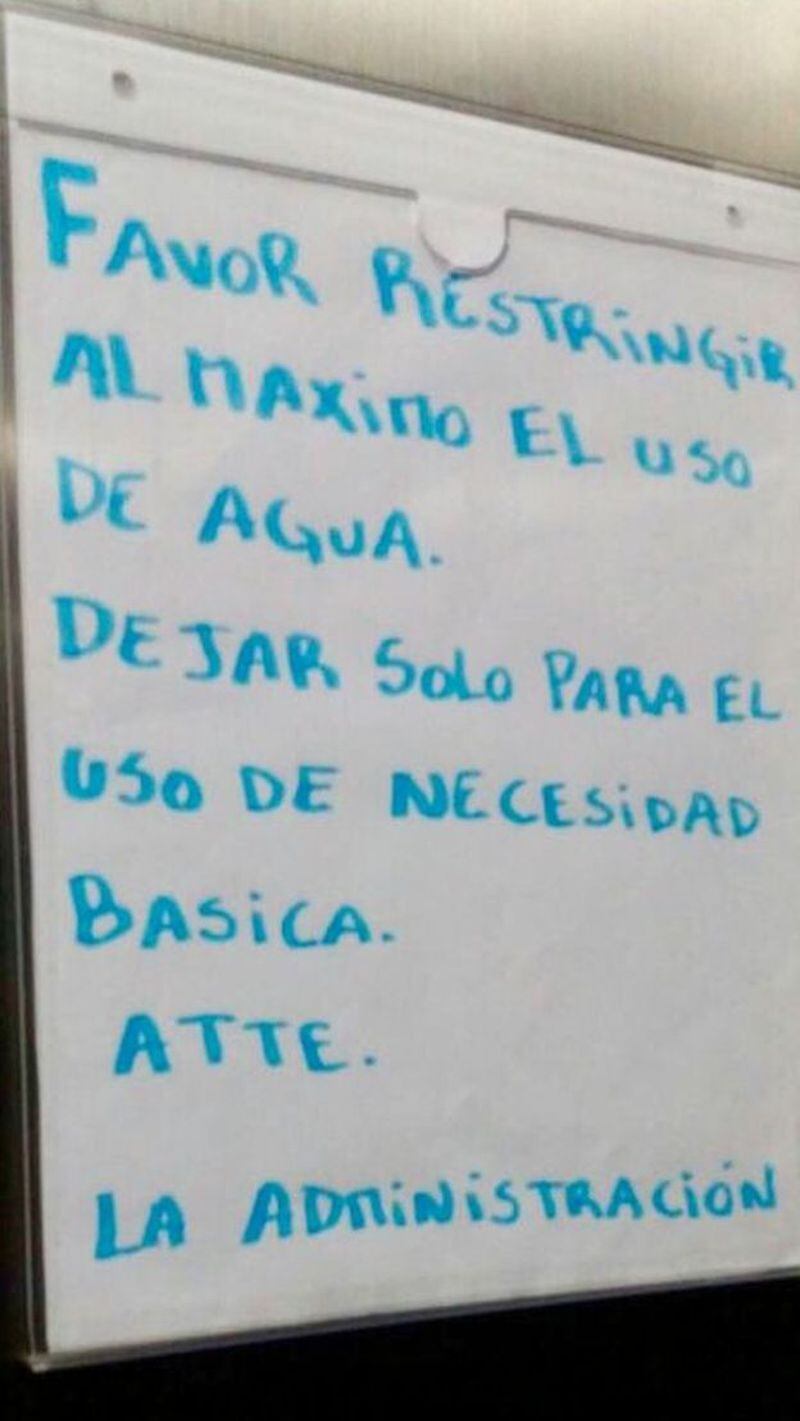 FAVOR RESTRINGIR
AL MAXIMO EL USO
DE AGUA.
DEJAR SOLO PARA EL
USO DE NECESIDAD
BASICA.
ATTE.
LA ADMINISTRACIÓN